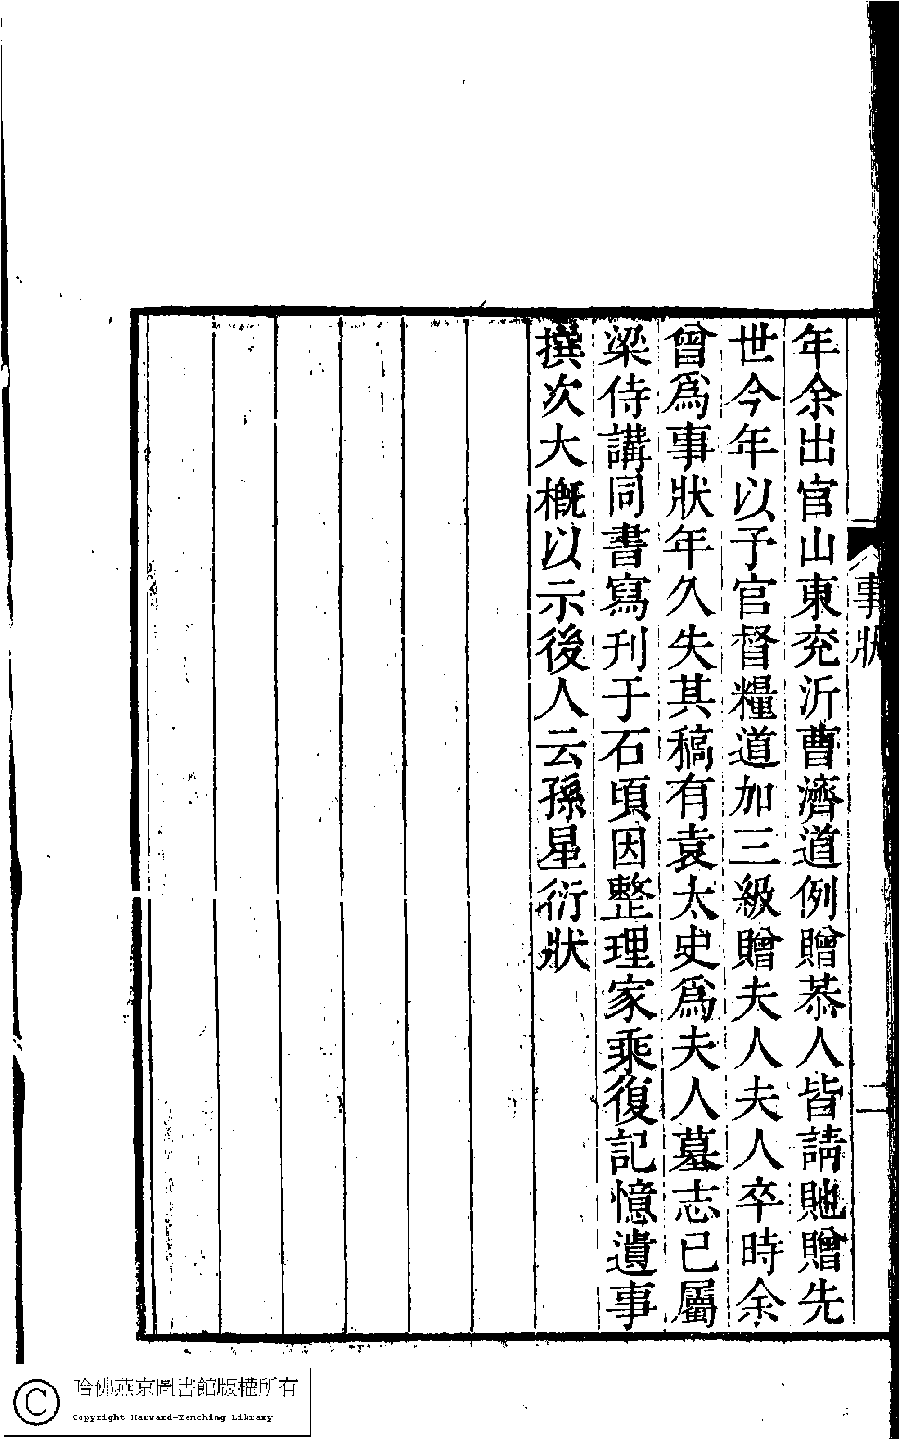 年余出官山東兖沂曹濟道例贈恭人皆請貤贈先
世今年以予官督糧道加三級贈夫人夫人卒時余
曾爲事狀年久失其稿有袁太史爲夫人墓志已屬
梁侍講同書寫刊于石頃因整理家乘復記憶遺事
撰次大概以示後人云孫星衍狀
事狀
二
哈佛燕京圖書館版權所有
Copyright Harvard-Yenching Library